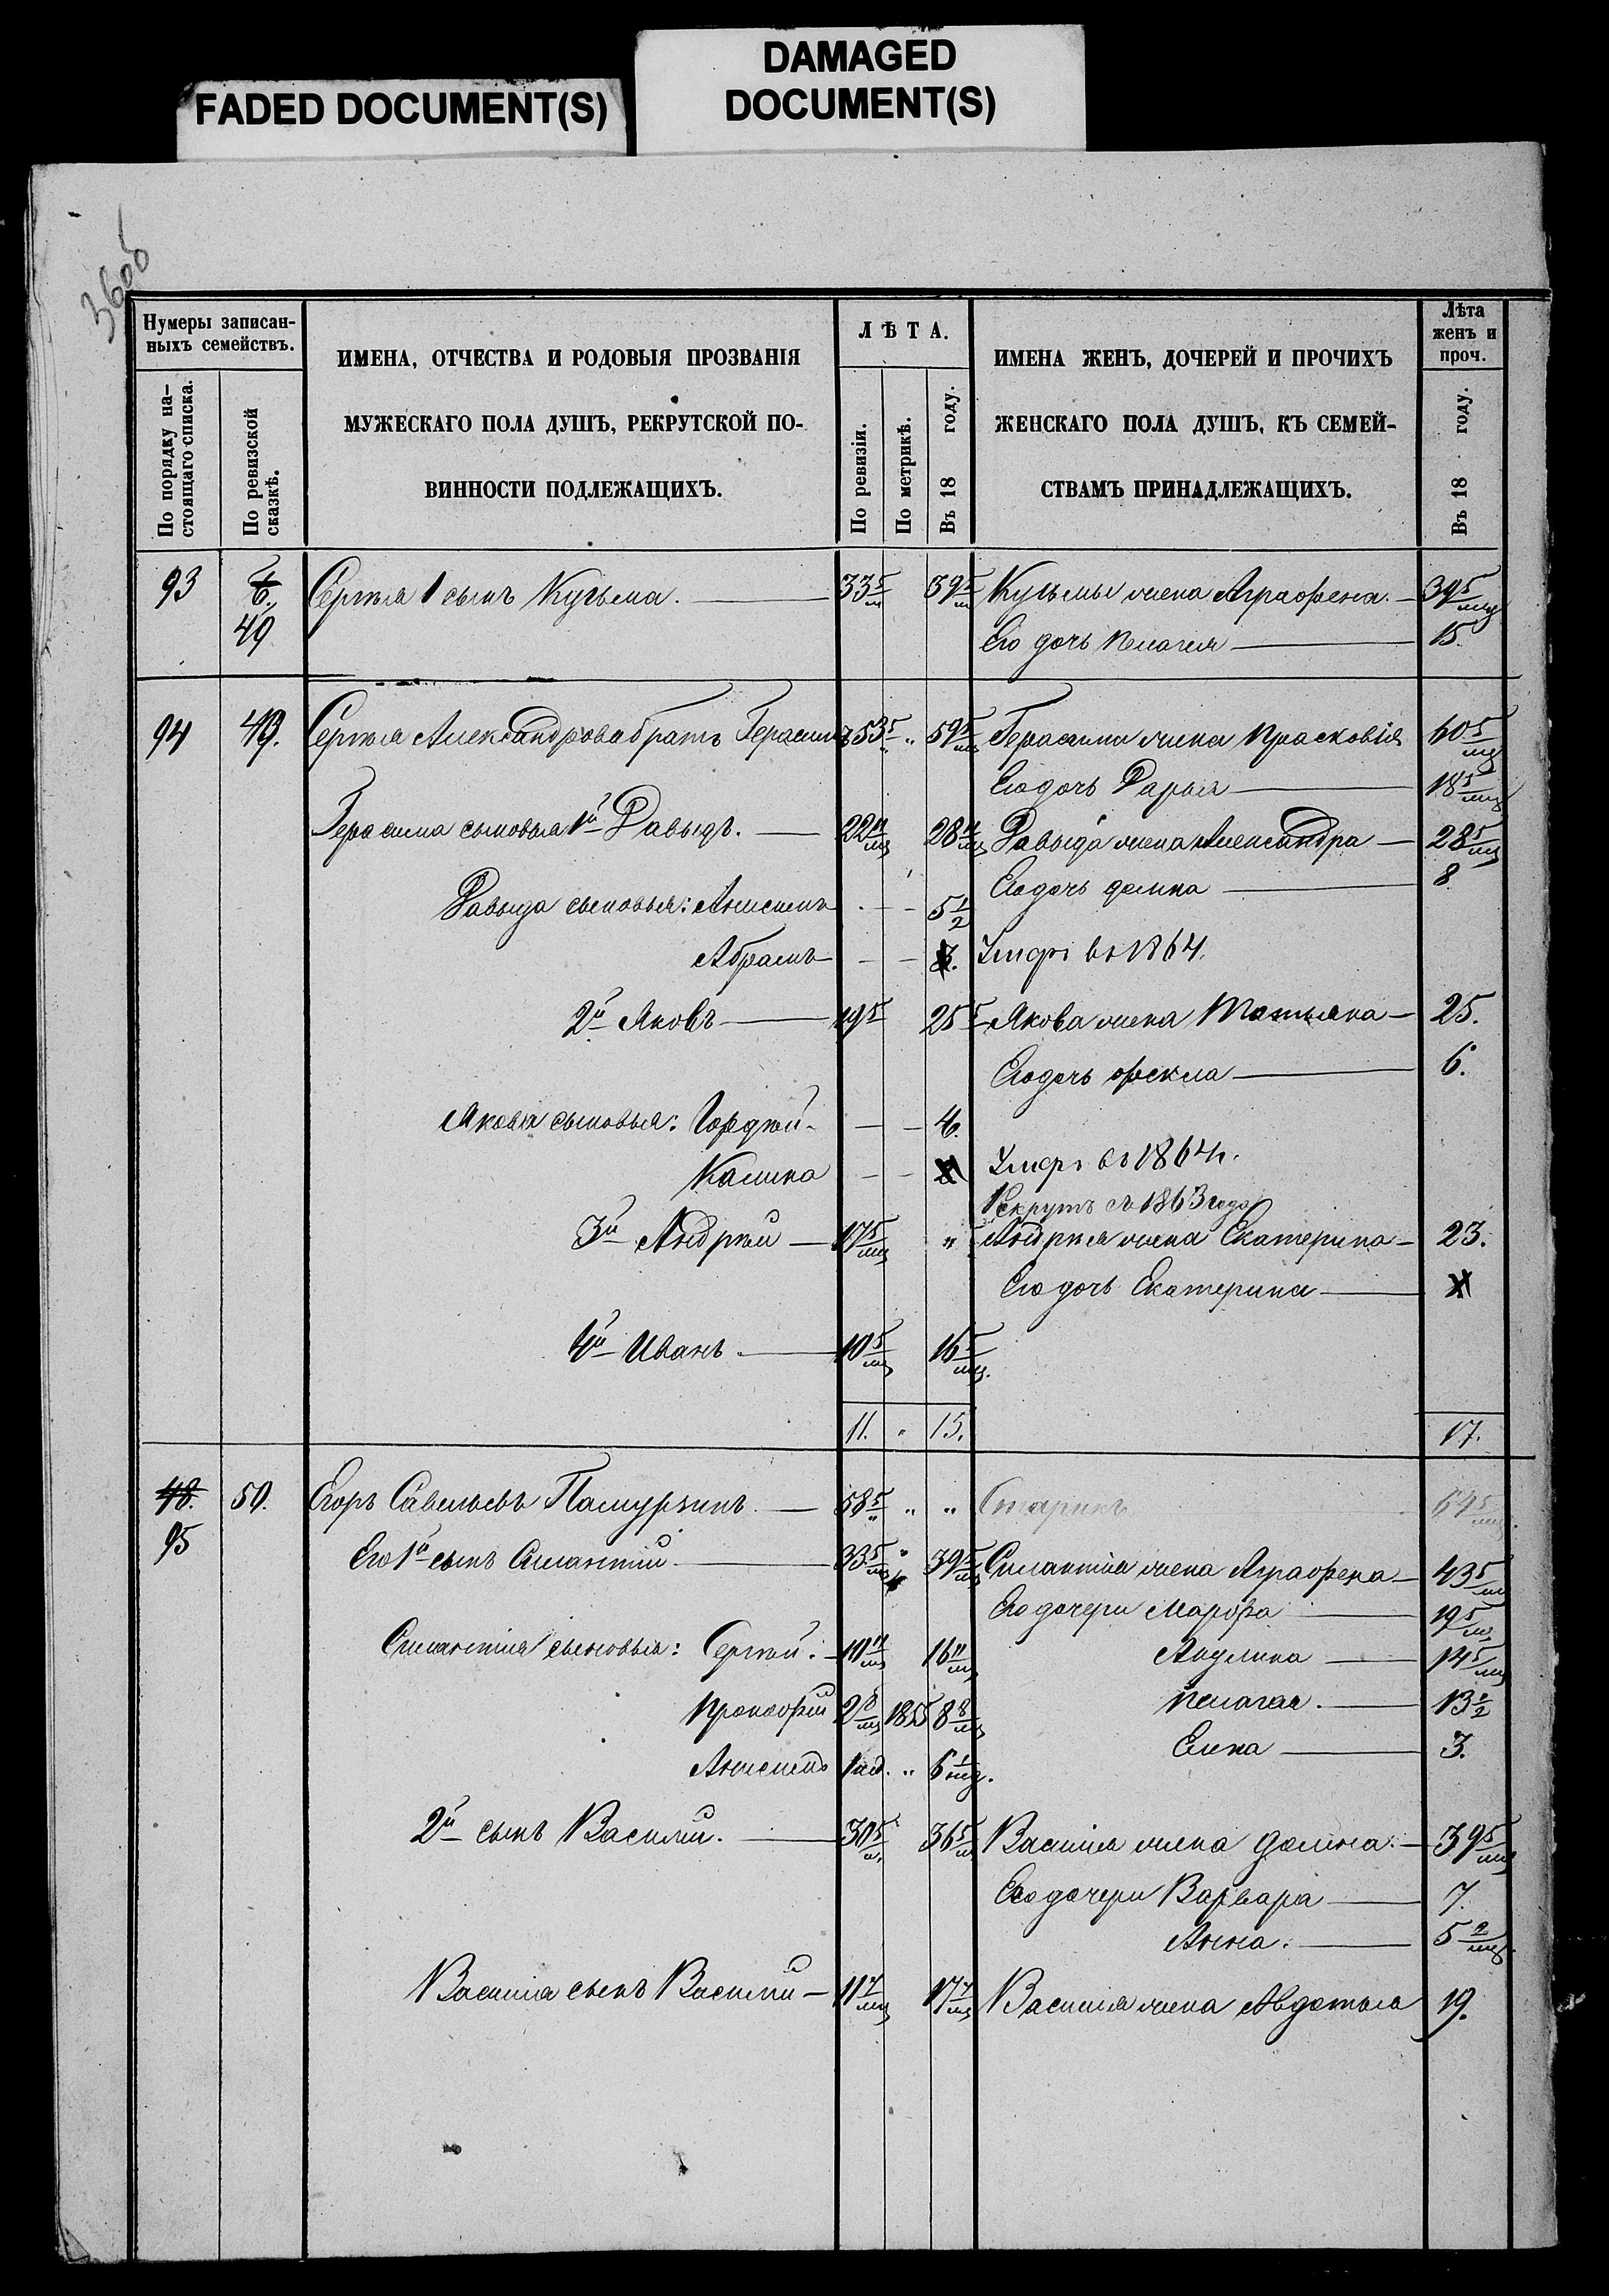 FADED DOCUMENT(S)
DAMAGED
DOCUMENT(S)
36об
Нумеры записан-
ныхъ семействъ.
По порядку на-
стоящаго списка.
По ревизской
сказкѣ.
ИМЕНА, ОТЧЕСТВА И РОДОВЫЯ ПРОЗВАНІЯ
МУЖЕСКАГО ПОЛА ДУШЪ, РЕКРУТСКОЙ ПО-
ВИННОСТИ ПОДЛЕЖАЩИХЪ.
ЛѢТА.
По ревизіи.
По метрикѣ.
Въ 18 году.
ИМЕНА ЖЕНЪ, ДОЧЕРЕЙ И ПРОЧИХЪ
ЖЕНСКАГО ПОЛА ДУШЪ, КЪ СЕМЕЙ-
СТВАМЪ ПРИНАДЛЕЖАЩИХЪ.
Лѣта
женъ и
проч.
Въ 18 году.
93 Сергѣя 1 сынъ Кузьма. — 33 5/м 39 5/м Кузьмы жена Аграфена. — 39 5/мц
49 Его дочь Пелагея — 15.
94 49. Сергѣя Александрова братъ Герасимъ 53 5/" " 59 5/мц Герасима жена Прасковія 60 5/мц
Его дочь Дарья — 18 5/мц
Герасима сыновья 1й Давыдъ. — 22 11/мц 28 11/мц Давыда жена Александра — 28 5/мц
Его дочь Домна — 8
Давыда сыновья: Анисимъ — 5 1/2
Абрамъ — Умеръ въ 1864.
2й Яковъ — 19 5 25 5 Якова жена Татьяна — 25.
Его дочь Фекла — 6.
Якова сыновья: Гордѣй — 4.
Калина — Умеръ въ 1864 г.
Рекрутъ съ 1863 года
3й Андрѣй — 17 5/мц " Андрѣя жена Екатерина — 23.
Его дочь Екатерина —
4й Иванъ — 10 5/мц 16 5/мц.
11. " 15. 17.
48. 50. Егоръ Савельевъ — 58 5/" " " Старикъ 64 5/мц
95 Его 1й сынъ Силантій — 33 5/мц " 39 5/мц Силантія жена Аграфена — 43 5/мц
Его дочери Марфа — 19 5/м.
Силантія сыновья: Сергѣй. — 10 11/мц 16 11/мц Акулина — 14 5/мц
Прокофій 2 8/мц 1855 8 8/мц Пелагея. — 13 1/2
Елена — 3.
Анисимъ 1 нд. " 6 1/мц.
2й сынъ Василій. — 30 5/м. 36 5/м Василія жена Домна. — 39 5/мц
Его дочери Варвара — 7.
Анна. — 5 2/мц.
Василія сынъ Василій — 11 7/мц 17 7/мц Василія жена Авдотья 19.